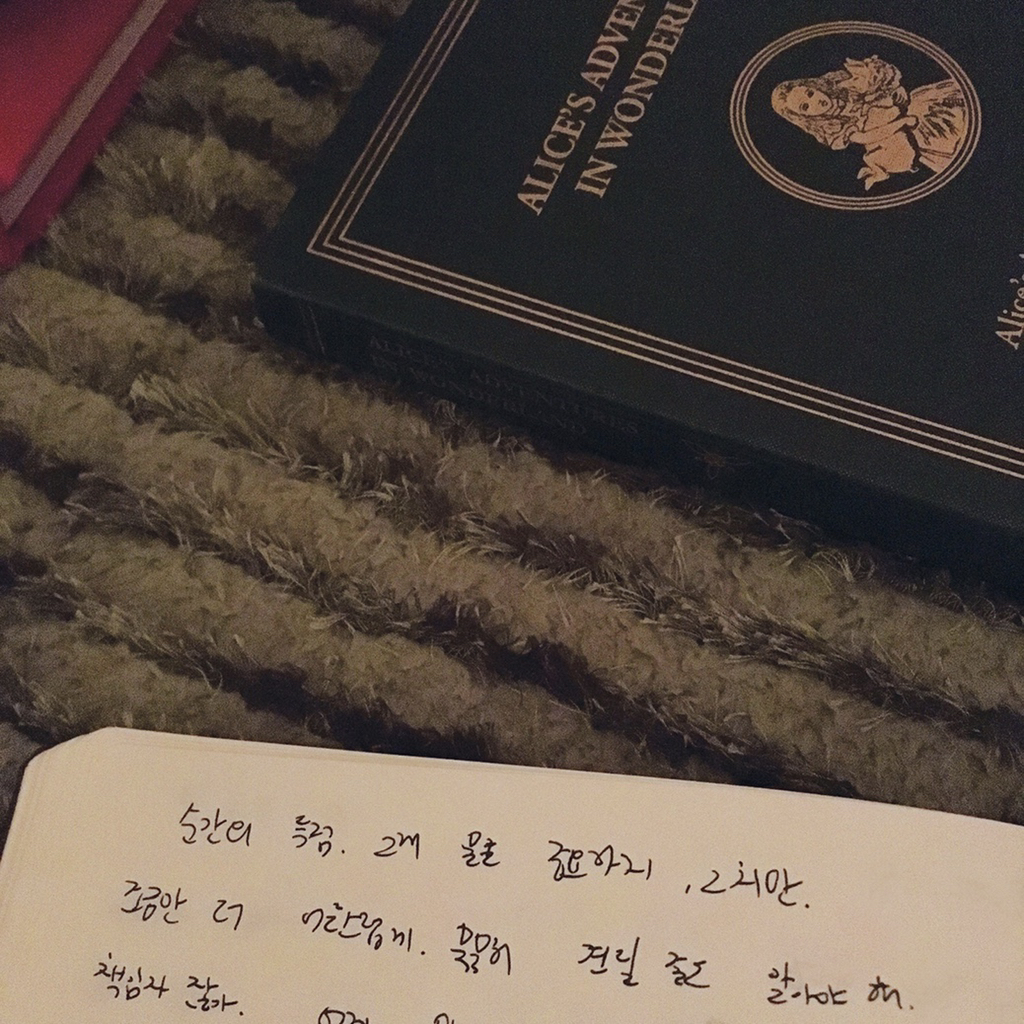 ALICE'S ADVEN
IN WONDERL
Alice's
ALICE'S ADVENTURES
IN WONDERLAND
순간의 득점. 그게 물론 중요하지, 그치만.
조금만 더 어른답게. 묵묵히 견딜 줄도 알아야 해.
책임자 잖아.